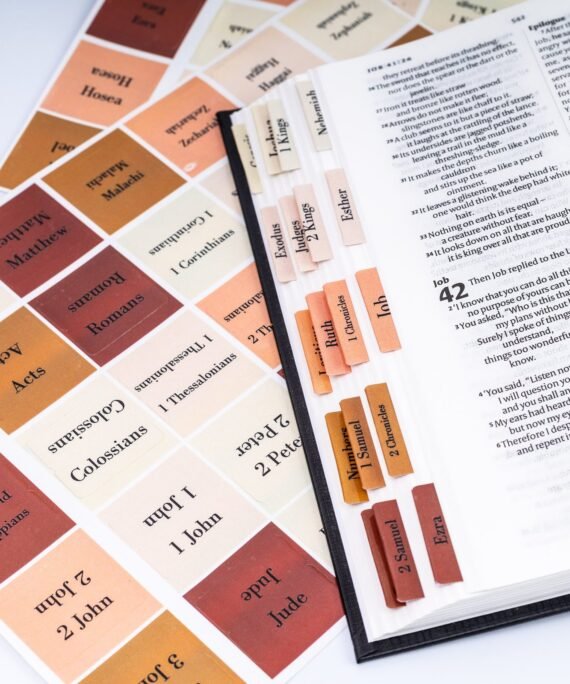 Ezra
Hosea
Hosea
Zephaniah
Haggai
Haggai
Zechariah
Zechariah
Malachi
Malachi
Matthew
Matthew
1 Corinthians
1 Corinthians
Romans
Romans
Acts
Acts
1 Thessalonians
1 Thessalonians
Colossians
Colossians
2 Peter
2 Pete
1 John
1 John
2 John
2 John
Jude
Jude
3 John
1 Kings
Nehemiah
Exodus
Judges
2 Kings
Esther
Ruth
1 Chronicles
Job
Numbers
1 Samuel
2 Chronicles
2 Samuel
Ezra
JOB 41:26
they retreat before its thrashing.
26 The sword that reaches it has no effect,
nor does the spear or the dart or the
27 Iron it treats like straw
and bronze like rotten wood.
28 Arrows do not make it flee;
slingstones are like chaff to it.
29 A club seems to it but a piece of straw;
it laughs at the rattling of the lance.
30 Its undersides are jagged potsherds,
leaving a trail in the mud like a
threshing-sledge.
31 It makes the depths churn like a boiling
cauldron
and stirs up the sea like a pot of
ointment.
32 It leaves a glistening wake behind it;
one would think the deep had white
hair.
33 Nothing on earth is its equal –
a creature without fear.
34 It looks down on all that are haugh
it is king over all that are proud
Job
42 Then Job replied to the L
2 'I know that you can do all thi
no purpose of yours can b
3 You asked, "Who is this tha
my plans without k
Surely I spoke of things
understand,
things too wonderful
know.
4 'You said, "Listen now
I will question yo
and you shall an
5 My ears had heard
but now my ey
6 Therefore I desp
and repent i
567
Epilogue
7 After